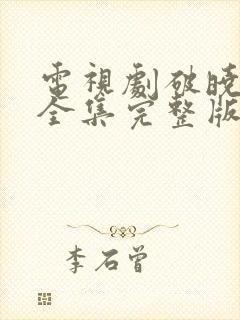 電視劇破曉
全集完整版
李石曾